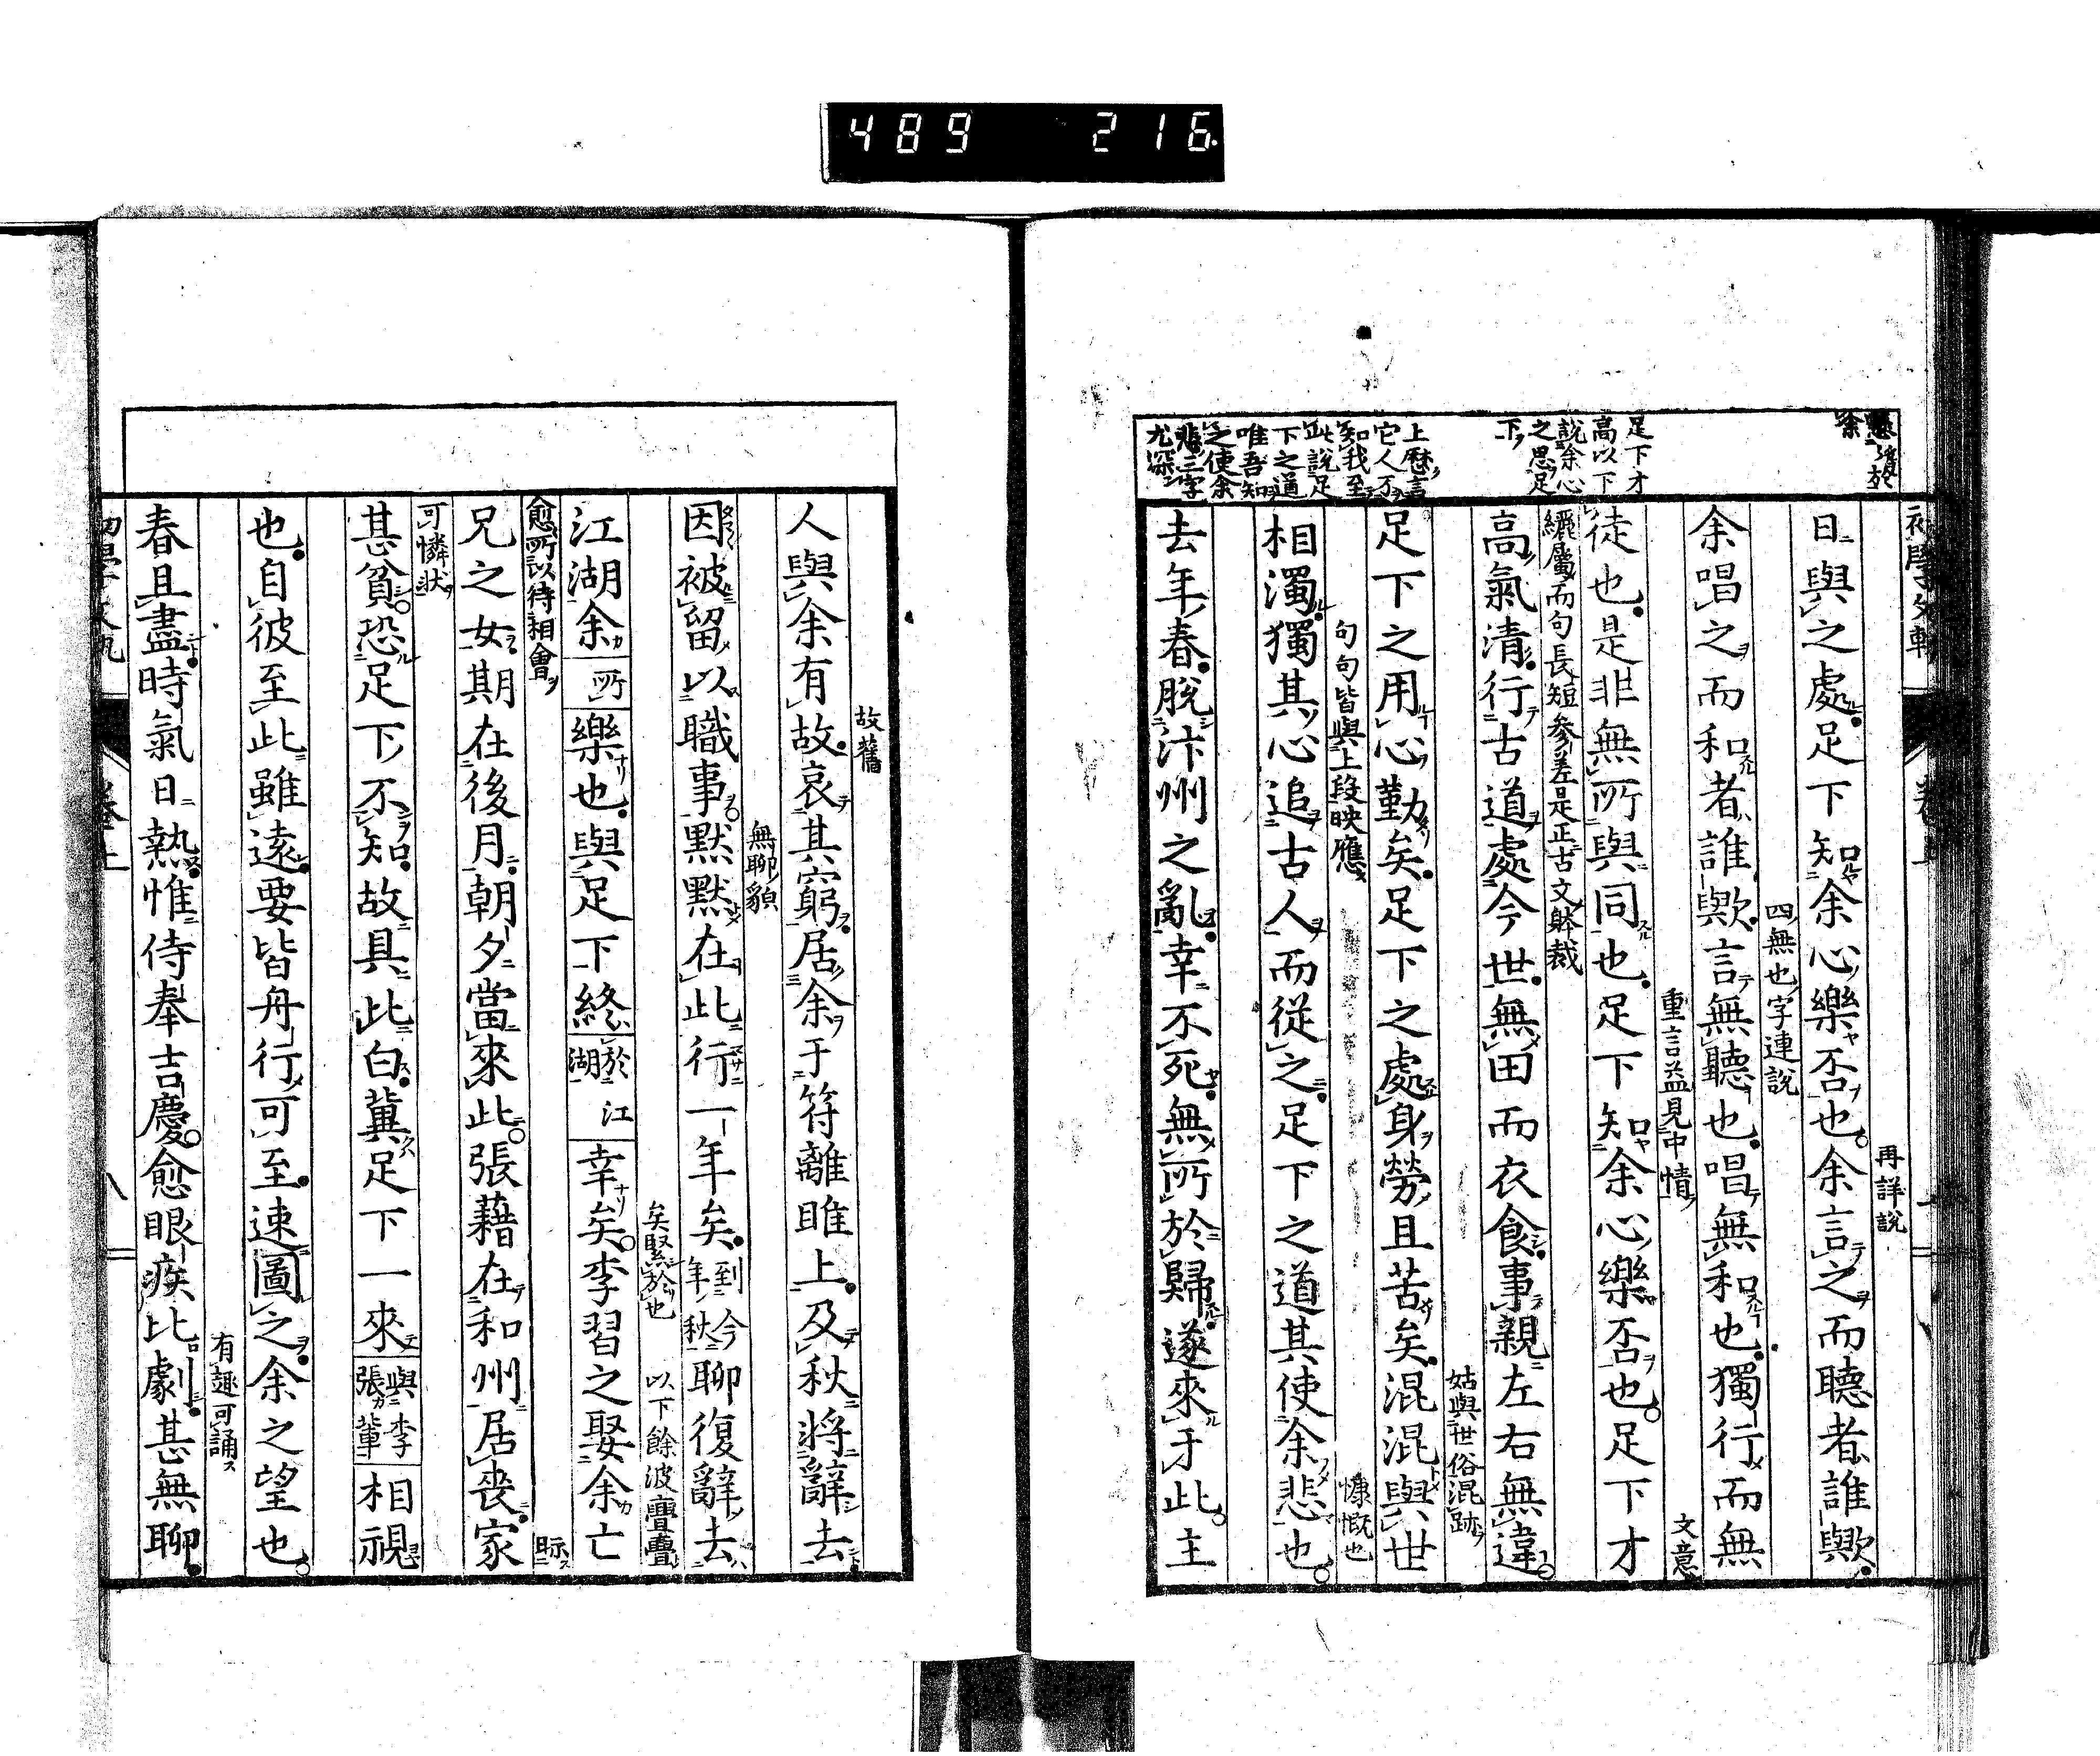 489 216
足下才
高以下
說余心
之思足
下
上歷言
它人不
知我至
此說足
下之道
唯吾知
之使余
悲三字
尤深
再詳說
日與之處足下知余心樂否也余言之而聽者誰歟
四無也字連說
余唱之而和者誰歟言無聽也唱無和也獨行而無
重言益見中情 文意
徒也是非無所與同也足下知余心樂否也足下才
纚屬而句長短參差是正古文躰裁
高氣清行古道處今世無田而衣食事親左右無違
姑與世俗混跡
足下之用心勤矣足下之處身勞且苦矣混混與世
句句皆與上段映應 慷慨也
相濁獨其心追古人而從之足下之道其使余悲也
去年春脫汴州之亂幸不死無所於歸遂來于此主
故舊
人與余有故哀其窮居余于符離睢上及秋將辭去
無聊貌
因被留以職事默默在此行一年矣到今年秋聊復辭去
矣緊於也 以下餘波亹亹
江湖余所樂也與足下終於江湖幸矣李習之娶余亡
愈所以待相會 眎
兄之女期在後月朝夕當來此張籍在和州居喪家
可憐狀
甚貧恐足下不知故具此白冀足下一來與李張輩相視
也自彼至此雖遠要皆舟行可至速圖之余之望也
有趣可誦
春且盡時氣日熱惟侍奉吉慶愈眼疾比劇甚無聊
卷上 八